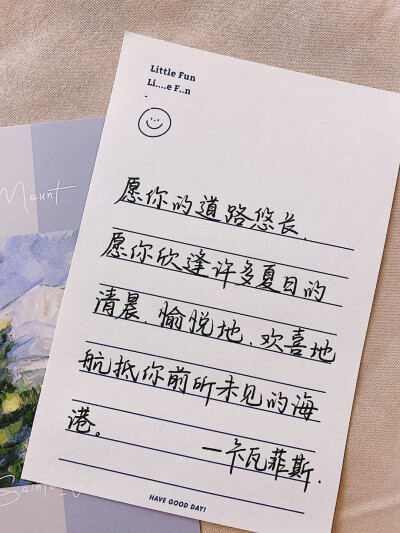 Little Fun
Li....e F..n
-
愿你的道路悠长,
愿你欣逢许多夏日的
清晨,愉悦地,欢喜地
航抵你前所未见的海
港。
—卡瓦菲斯.
HAVE GOOD DAY!
Mount
Sainte